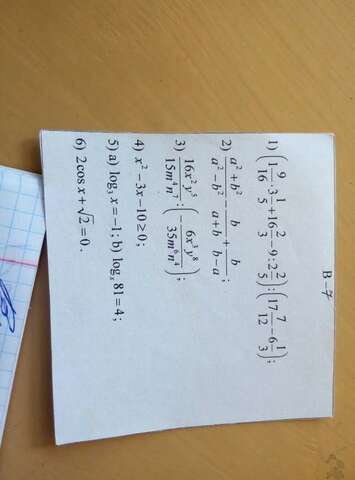 В–7
1) (1 9/16 · 3 1/5 + 16 2/3 – 9 : 2 2/5) : (17 7/12 – 6 1/3);
2) (a² + b²)/(a² – b²) – b/(a + b) + b/(b – a);
3) 16x²y⁵/15m⁴n⁷ : (– 6x³y⁸/35m⁶n⁴);
4) x² – 3x – 10 ≥ 0;
5) a) log₃ x = –1; b) logₓ 81 = 4;
6) 2cos x + √2 = 0.